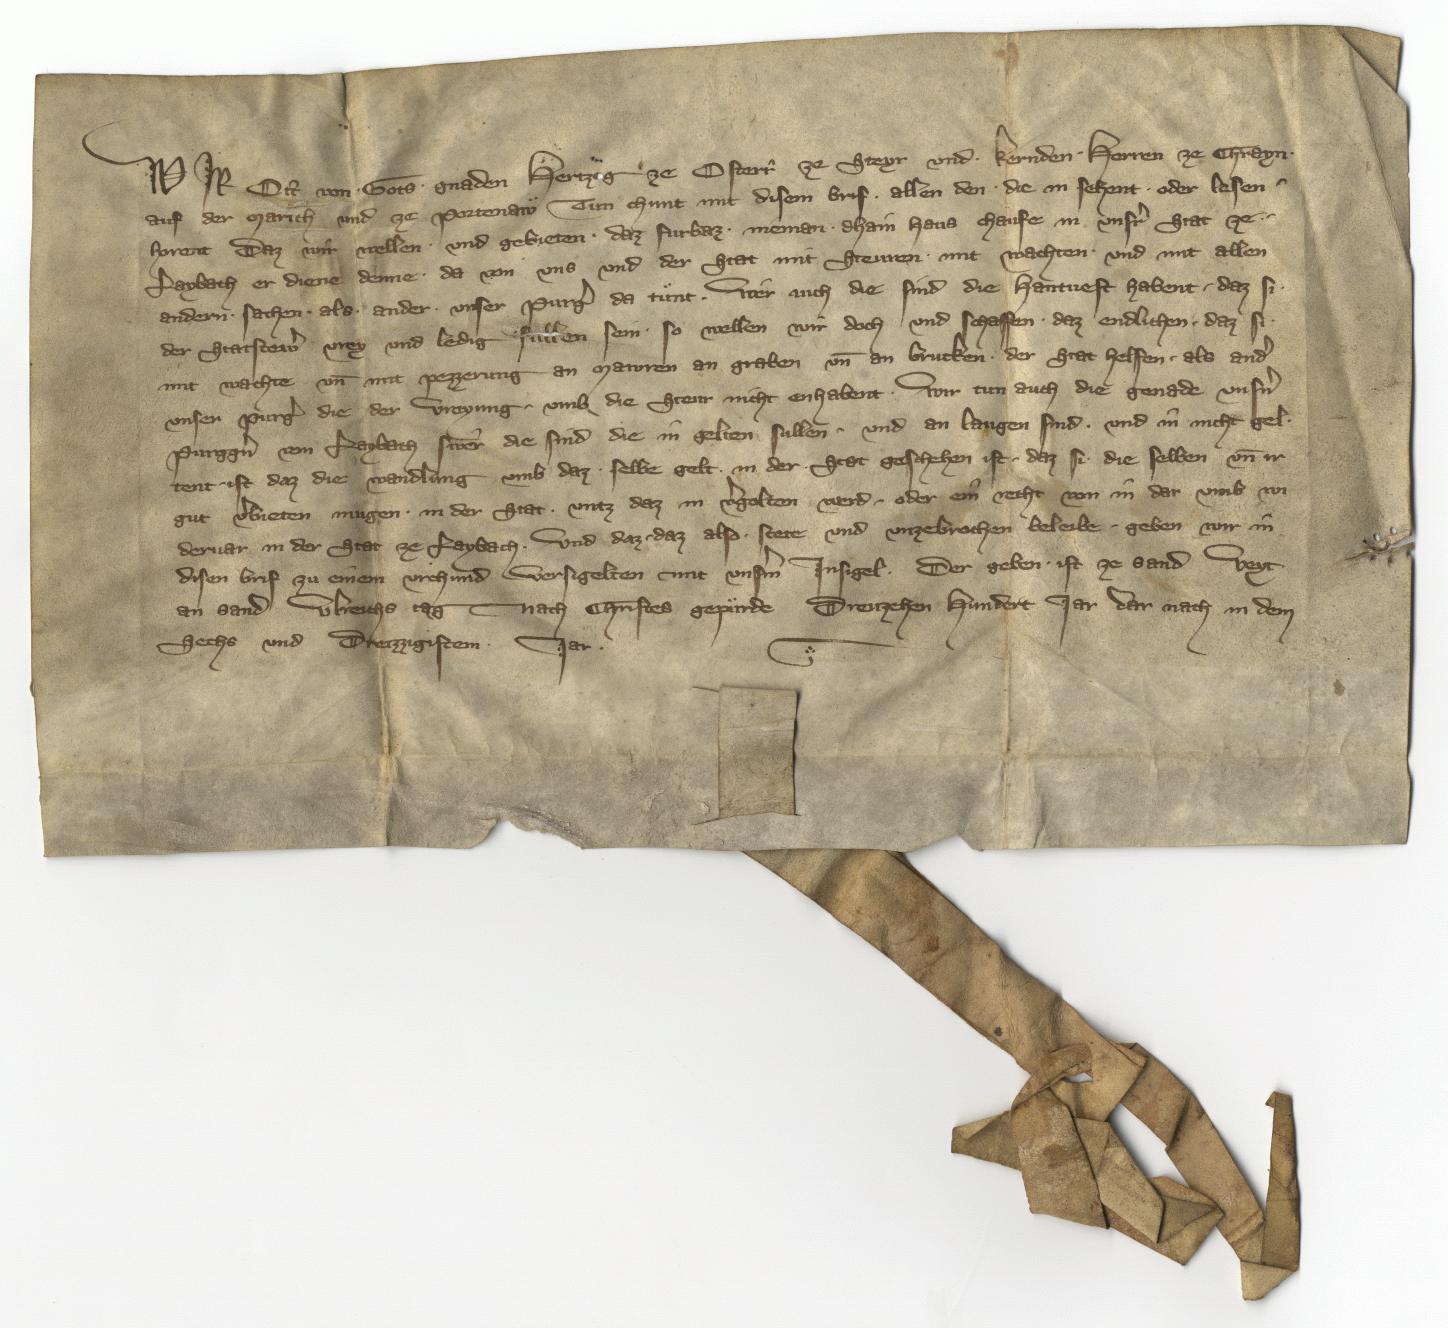 WIR Ott von · Gots · gnaden Hertzog ze Osterr̄ ze Steyr und · kernden · Herren ze Chrayn ·
auf der Marich und ze Portenaw Tun chunt mit disem brif · allen den · die in sehent · oder lesen ·
horent Daz wir wellen · und gebieten · daz furbaz · nieman · dhain haus chaufe in unsr̄ Stat ze ·
Laybach er diene denne · da von uns und der Stat mit Steuren · mit wachten · und mit allen
andern · sachen · als · ander · unser Purḡ da tunt · Wer auch die sind die hantvest habent · daz si ·
der Statstew̄r vrey und ledig sullen sein · so wellen wir doch und schaffen · daz endlichen · daz si ·
mit wachte un̄ mit pezzerung an Mauren an graben un̄ an brukken · der Stat helffen · als and̄
unser Purḡ die der vreyung · umb die Steur nicht enhabent · Wir tun auch die genade unsn̄
Purggn̄ von Laybach swer die sind die in gelten sullen · und an laugen sind · und in nicht gel ·
tent · ist daz die wandlung umb daz · selbe gelt · in der · Stat geschehen ist · daz si · die selben un̄ ir
gut v̄bieten mugen · in der Stat · untz daz in v̄golten werd · oder ein recht von in dar umb wi
dervar in der Stat ze Laybach · Und daz · daz also · stete und unzebrochen beleibe · geben wir in
disen brif zu einem urchund versigelten mit unsm̄ Insigel · Der geben · ist ze sand Veyt
an sand Ulreichs tag Nach Christes gepurde Dreutzehen Hundert Jar dar nach in dem
Sechs und Dreizzigistem · Jar ·